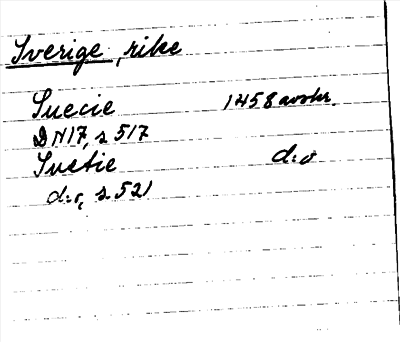 Sverige, rike
Suecie 1458 avskr.
DN17, s 517
Suetie d:o
d:o, s. 521